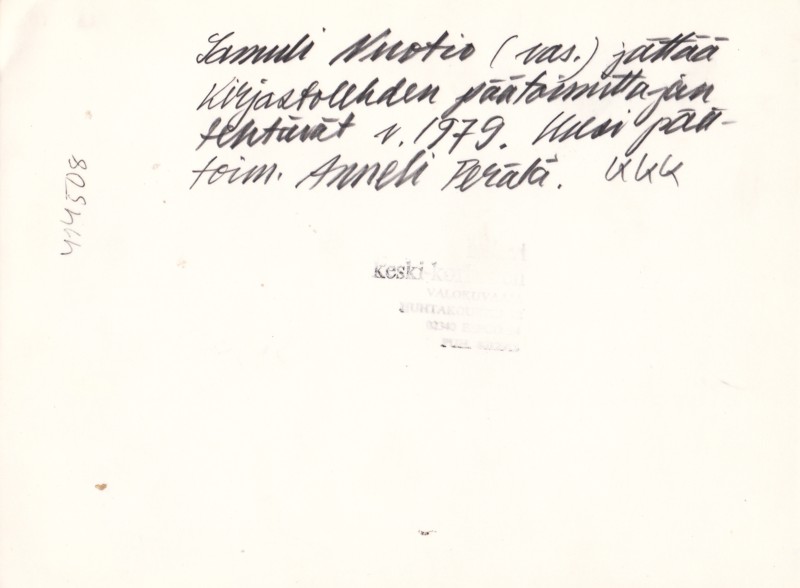 Samuli Nuotio (vas.) jättää
Kirjastolehden päätoimittajan
tehtävät v. 1979. Uusi pää-
toim. Anneli Perälä. KKK
411-4508
keski-
VALOKUVAAJA
02340
PUH.